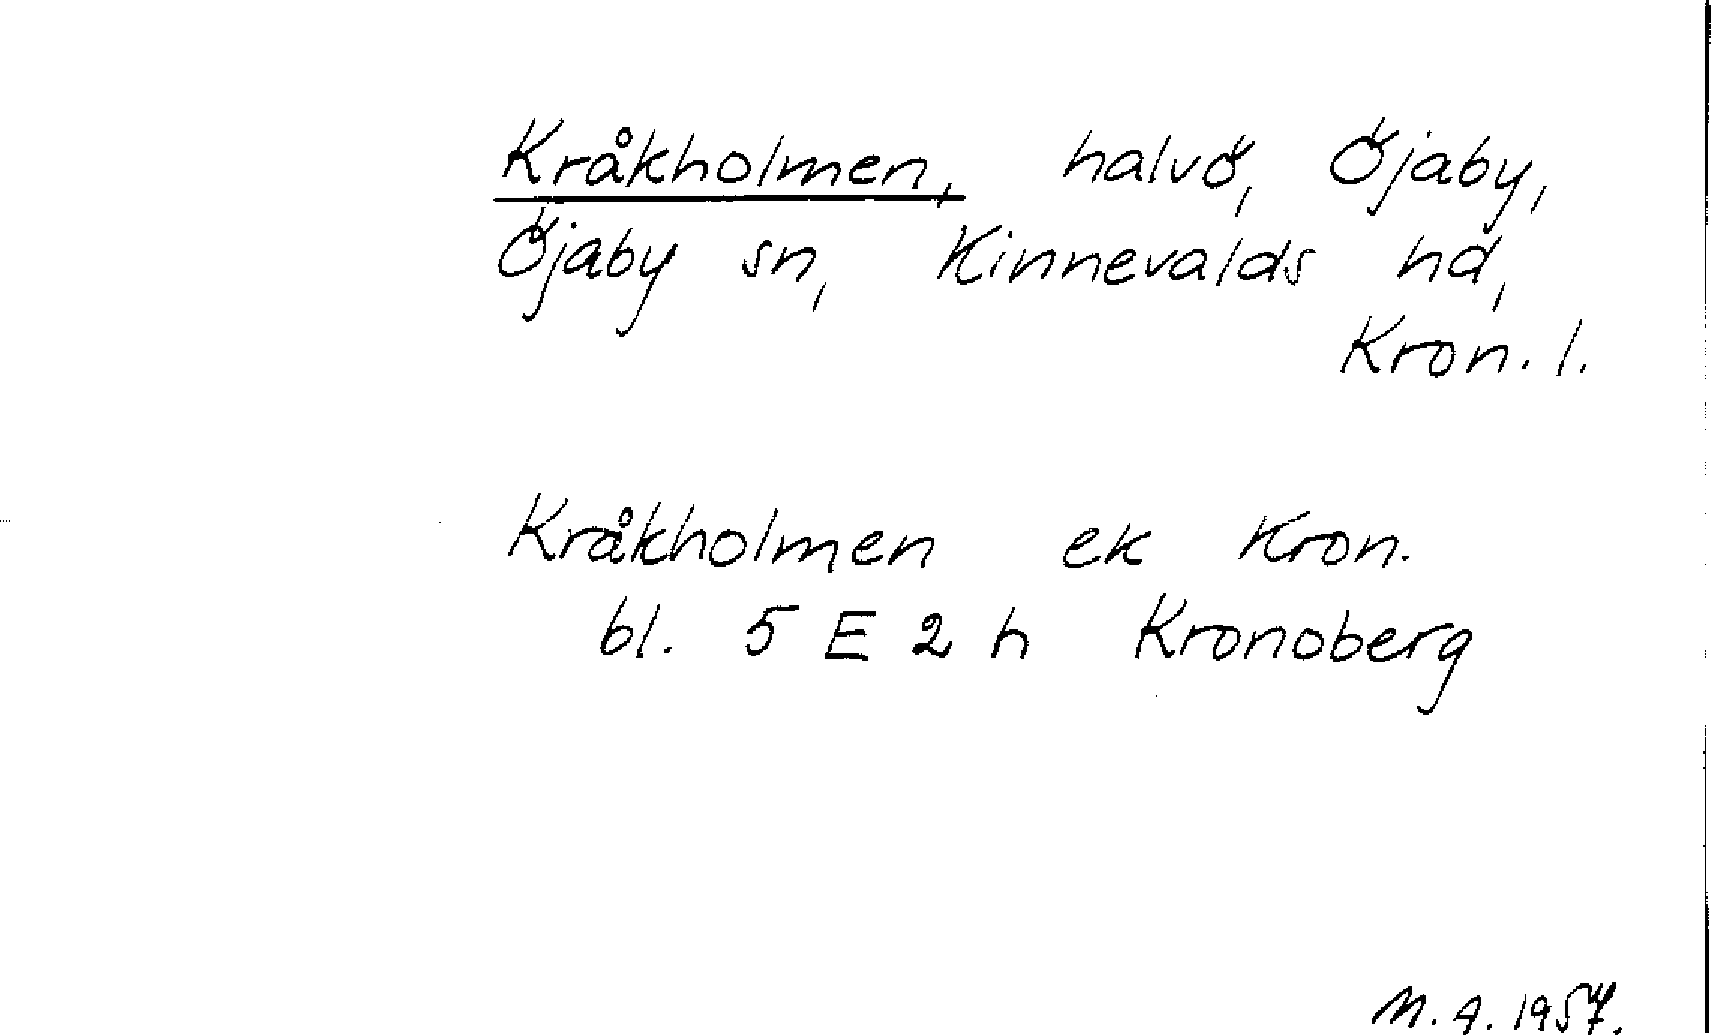 Kråkholmen, halvö, Öjaby,
Öjaby sn, Kinnevalds hd,
Kron. l.
Kråkholmen ek Kron.
bl. 5 E 2 h Kronoberg
M. A. 1957.